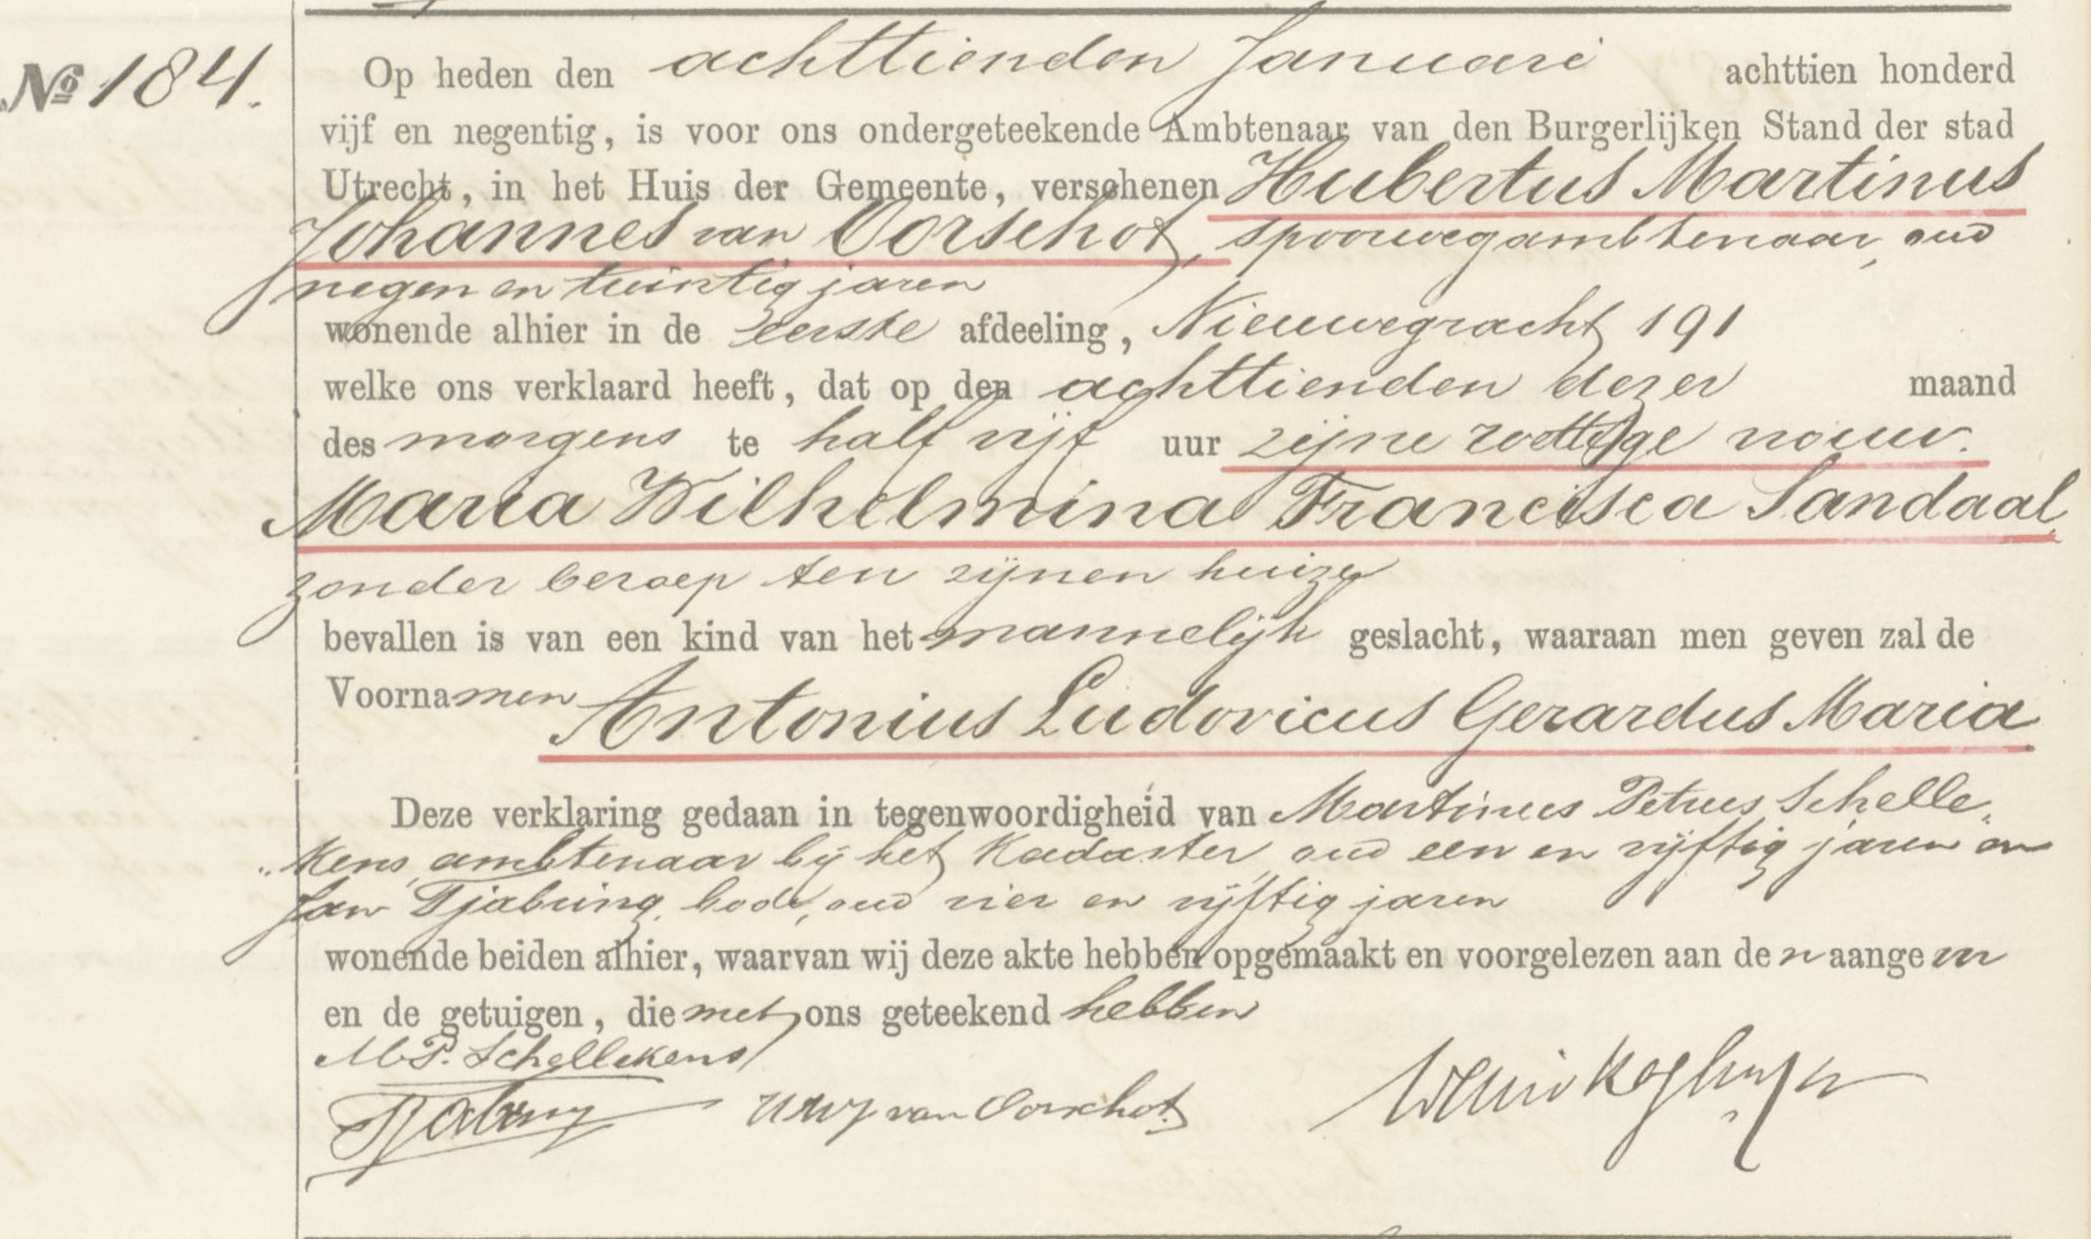 № 184.
Op heden den achttienden Januari achttien honderd
vijf en negentig, is voor ons ondergeteekende Ambtenaar van den Burgerlijken Stand der stad
Utrecht, in het Huis der Gemeente, verschenen Hubertus Martinus
Johannes van Oorschot, spoorwegambtenaar, oud
negen en twintig jaren
wonende alhier in de eerste afdeeling, Nieuwegracht 191
welke ons verklaard heeft, dat op den achttienden dezer maand
des morgens te half vijf uur zijne wettige vrouw
Maria Wilhelmina Francisca Sandaal,
zonder beroep ten zijnen huize
bevallen is van een kind van het mannelijk geslacht, waaraan men geven zal de
Voornamen Antonius Ludovicus Gerardus Maria
Deze verklaring gedaan in tegenwoordigheid van Martinus Petrus Schelle„
„kens, ambtenaar bij het Kadaster, oud een en vijftig jaren en
Jan Tjabring, bode, oud vier en vijftig jaren
wonende beiden alhier, waarvan wij deze akte hebben opgemaakt en voorgelezen aan den aangever
en de getuigen, die met ons geteekend hebben
M.P. Schellekens
JTjabring HMJ van Oorschot.